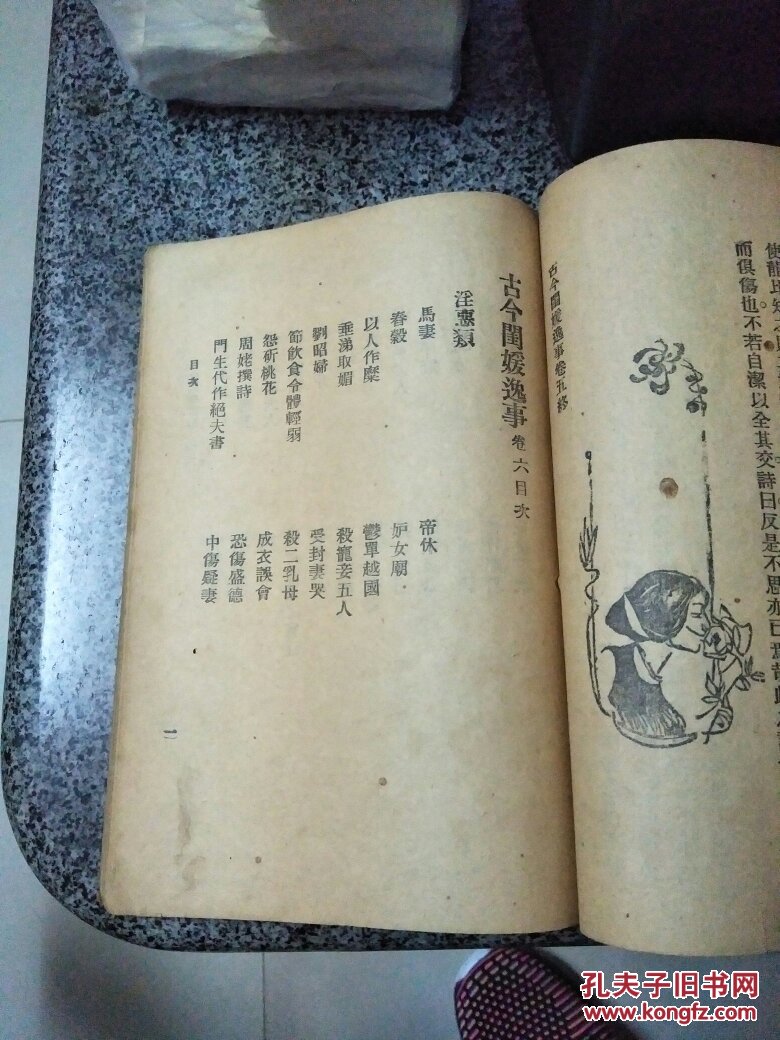 而俱傷也不若自潔以全其交詩曰反是不思亦已焉哉
古今閨媛逸事卷五終
古今閨媛逸事 卷六目次
淫惡類
馬妻
帝休
舂穀
妒女廟
以人作糜
鬱單越國
垂涕取媚
殺寵妾五人
劉昭婦
受封妻哭
節飲食令體輕弱
殺二乳母
怨斫桃花
成衣誤會
周姥撰詩
恐傷盛德
門生代作絕夫書
中傷疑妻
目次
一
孔夫子旧书网
www.kongfz.com